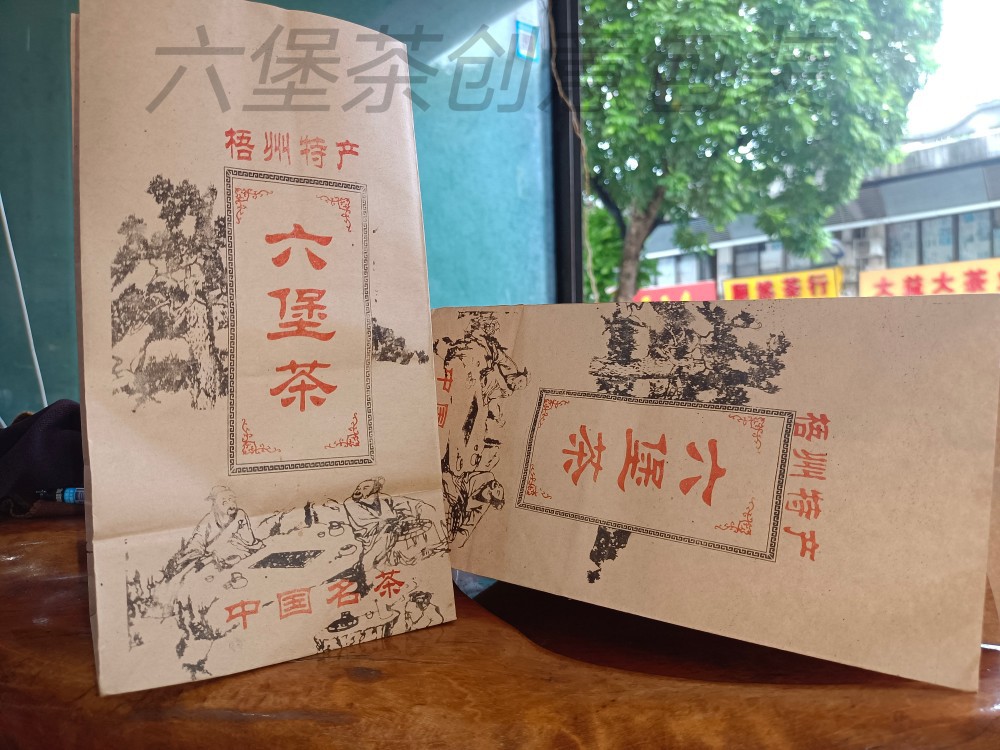 六堡茶创
梧州特产
六堡茶
中国名茶
茶行
大益大茶
中国
六堡茶
梧州特产